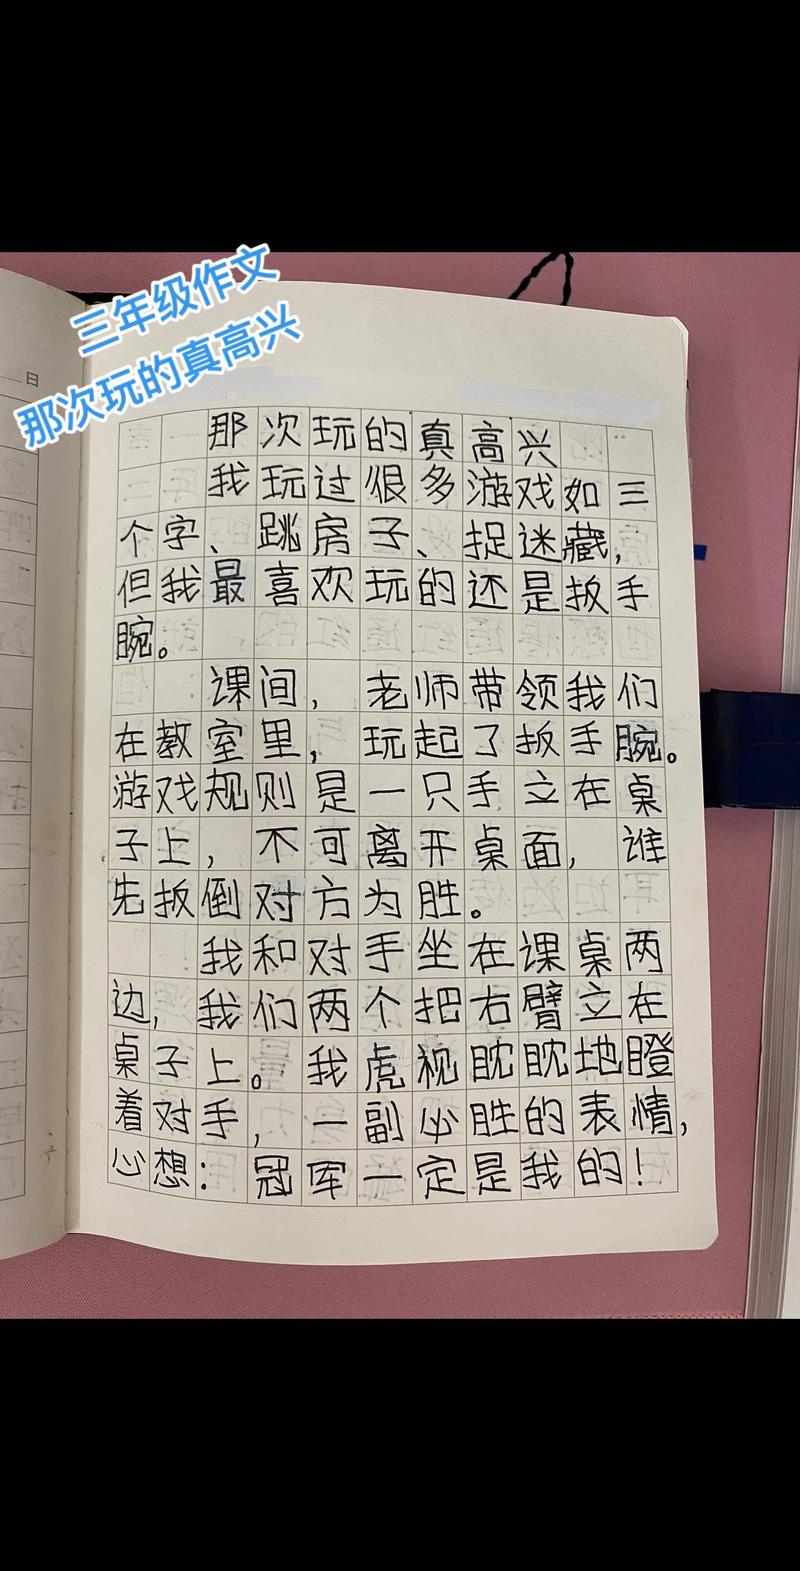 三年级作文
那次玩的真高兴
日
那次玩的真高兴
我玩过很多游戏如三
个字、跳房子、捉迷藏，
但我最喜欢玩的还是扳手
腕。
课间，老师带领我们
在教室里，玩起了扳手腕。
游戏规则是一只手立在桌
子上，不可离开桌面，谁
先扳倒对方为胜。
我和对手坐在课桌两
边，我们两个把右臂立在
桌子上。我虎视眈眈地瞪
着对手，一副必胜的表情，
心想：冠军一定是我的！